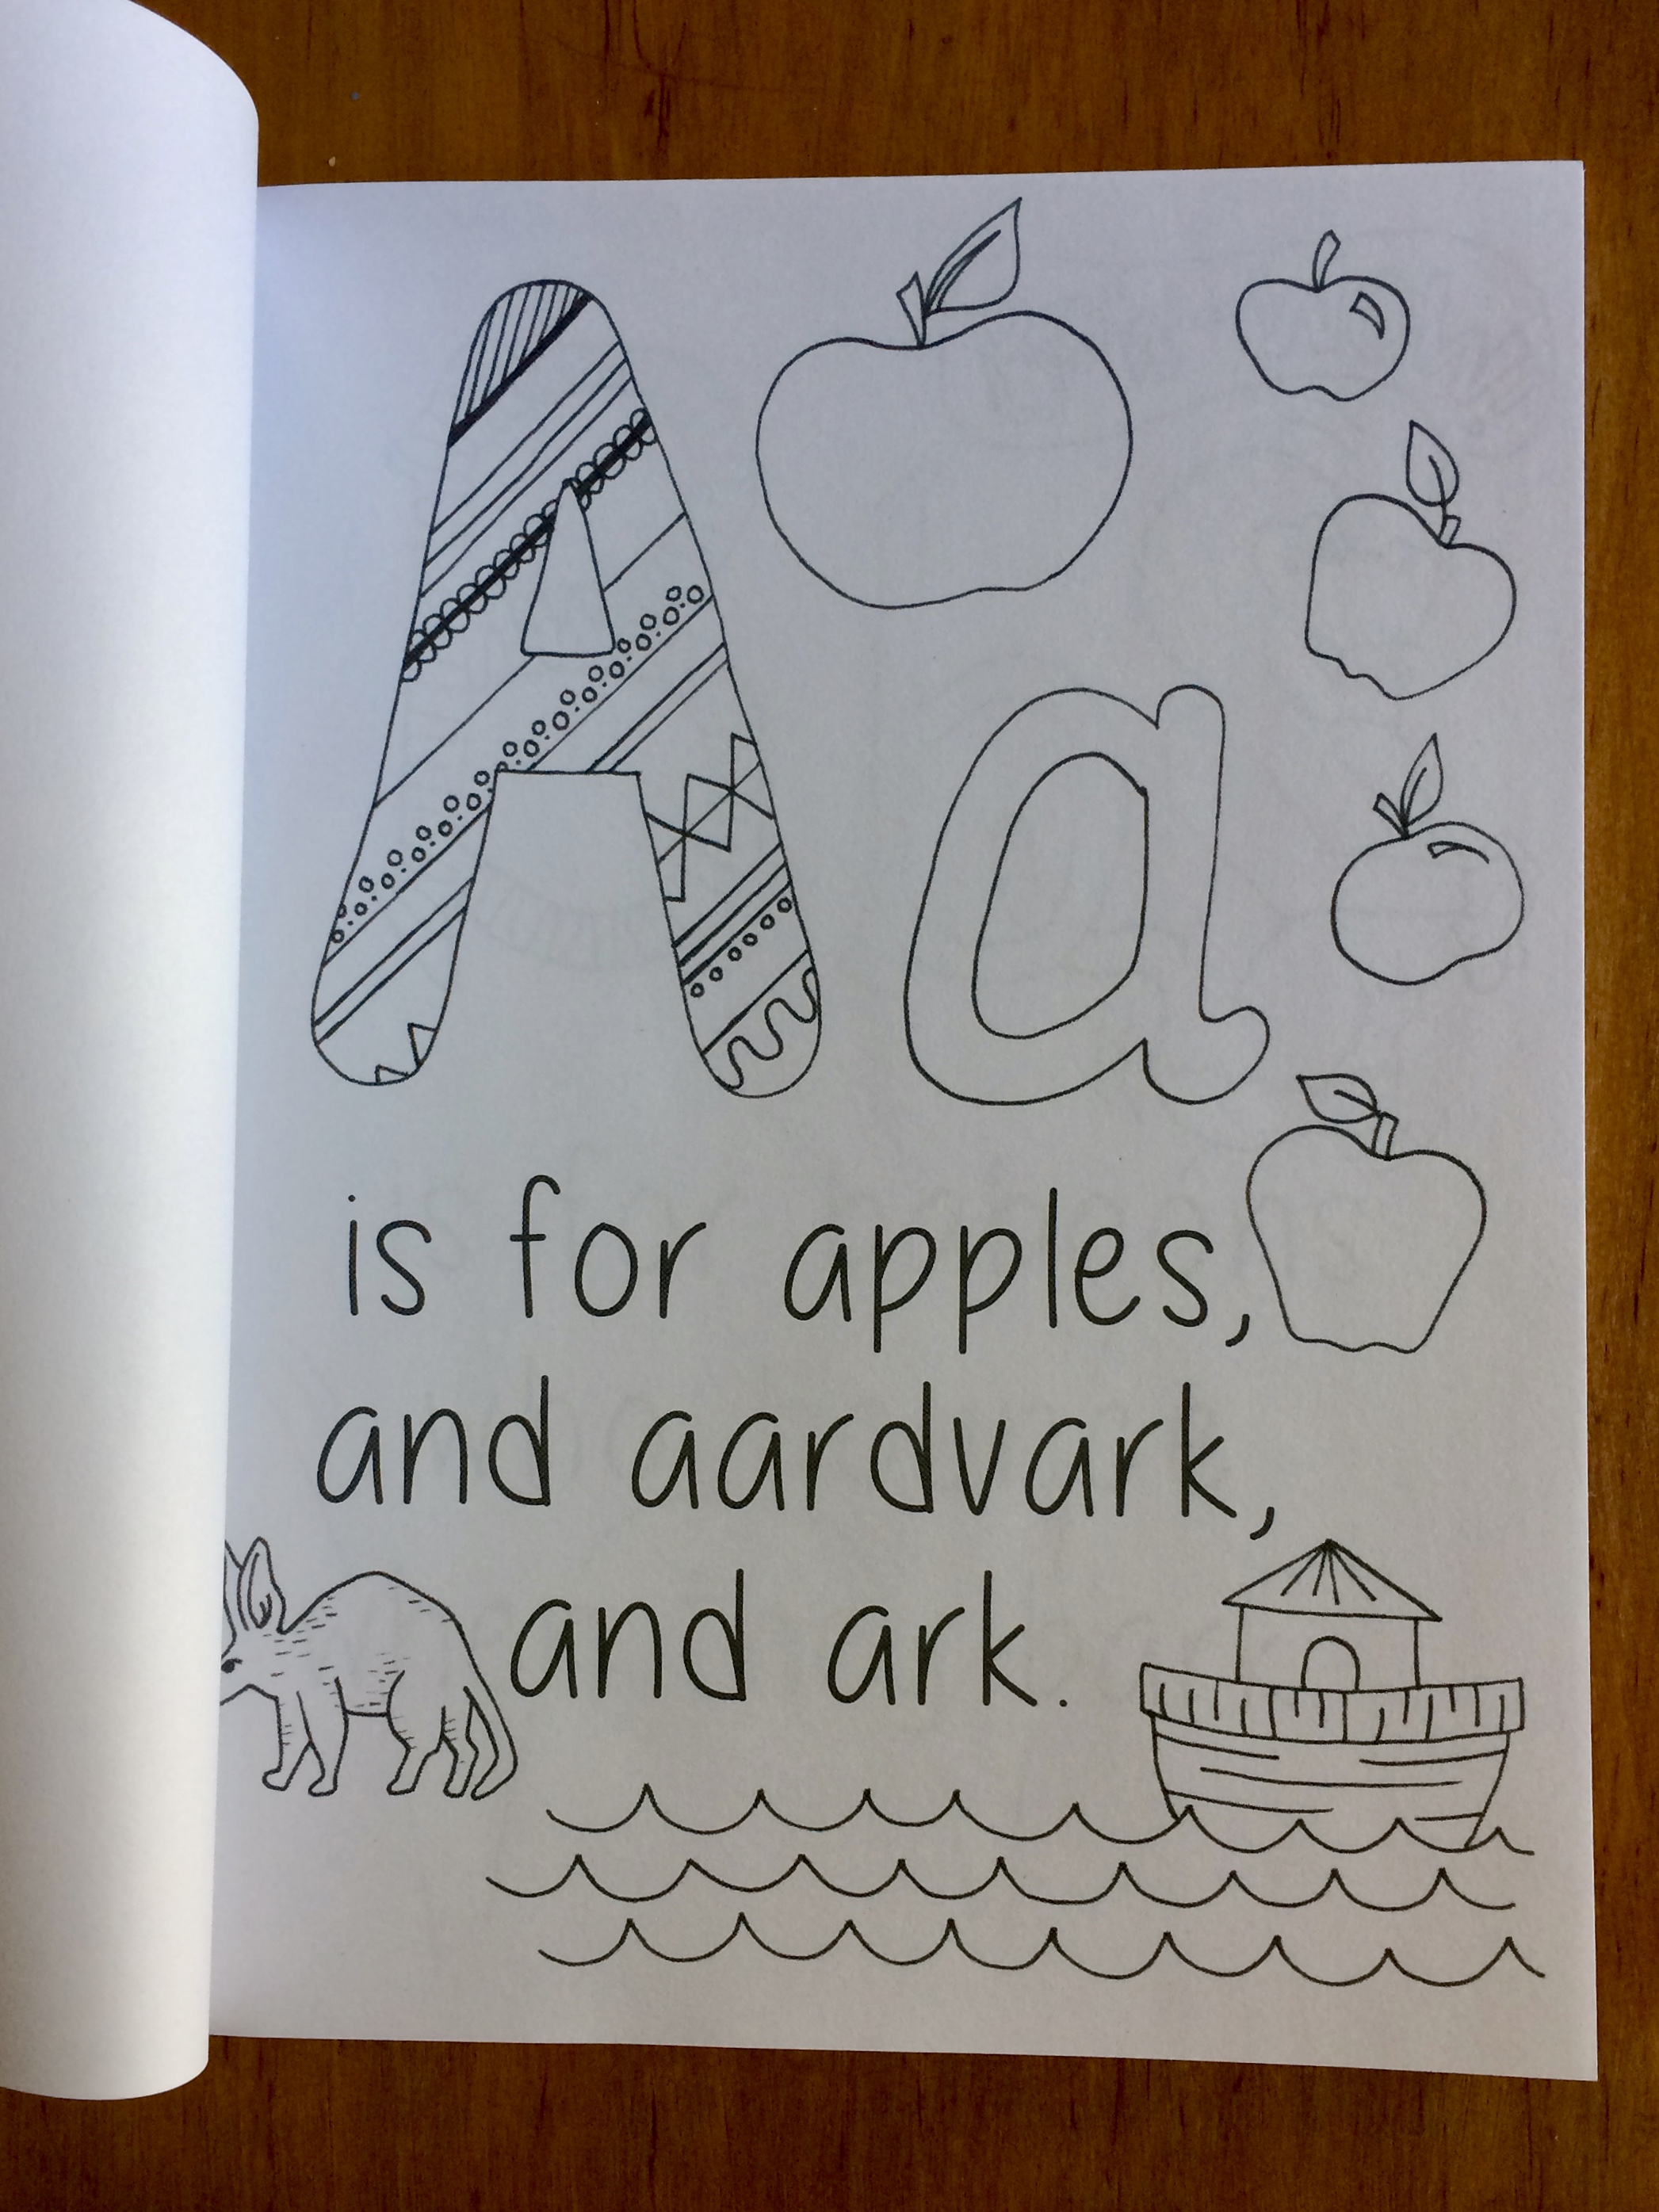 A a
is for apples,
and aardvark,
and ark.